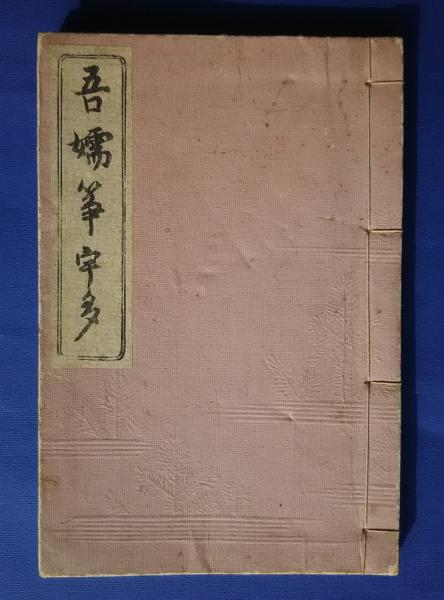 吾嬬箏宇多